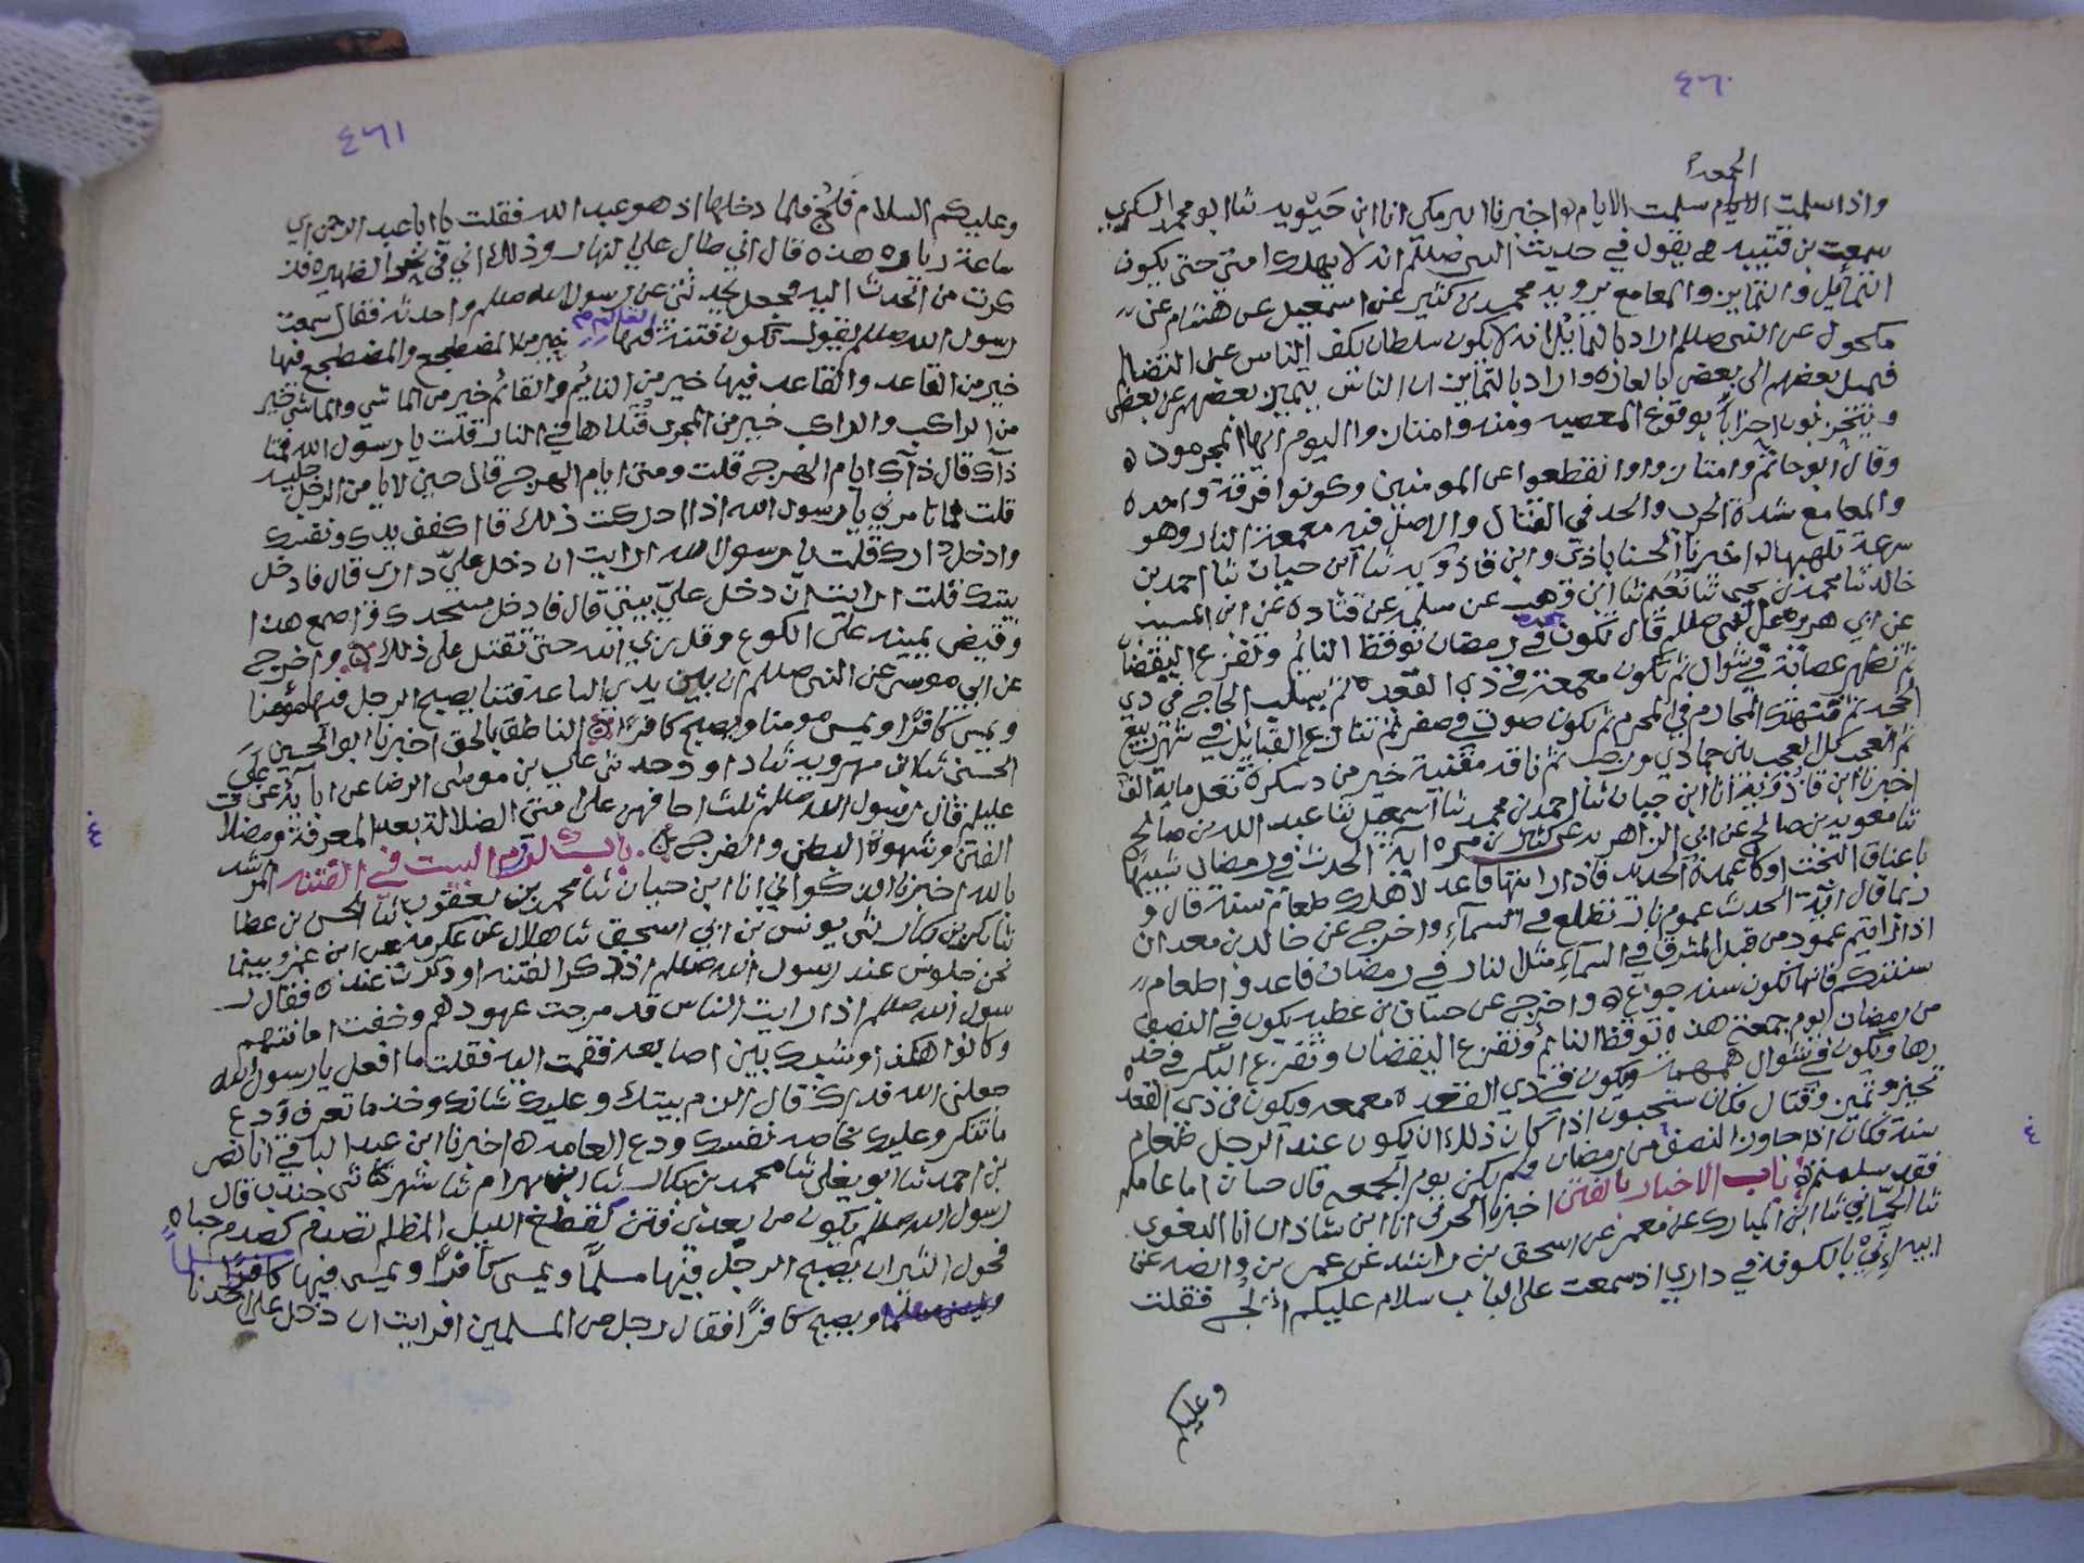 ٤٦٠
الجمعة
واذا سلمت الايام سلمت الايام اخبرنا البرمكي انا ابن حيويه ثنا ابو محمد السكري
سمعت بن قتيبه يقول في حديث النبي صللم انه لا يهلك امتي حتى يكون
التمايل والتماين والمعامع يرويه محمد بن كثير عن اسمعيل عن هشام عن
مكحول عن النبي صللم اراد بالتمايل انه لا يكون سلطان يكف الناس عن التضالم
فيميل بعضهم الى بعض بالغاره واراد بالتماين ان الناس يتميز بعضهم عن بعض
ويتحزبون احزابا بوقوع المعصيه ومنه وامتازوا اليوم ايها المجرمون
وقال ابو حاتم وامتازوا انقطعوا عن المومنين وكونوا فرقة واحده
والمعامع شدة الحرب والجد في القتال والاصل فيه معمعة النار وهو
سرعة تلهبها اخبرنا الحسناباذي وابن قاذويه ثنا ابن حيان ثنا احمد بن
خالد ثنا محمد بن يحيى ثنا نعيم ثنا ابن وهب عن مسلمه عن قتاده عن ابن المسيب
عن ابي هريره عن النبي صللم قال تكون في رمضان توقظ النائم وتفزع اليقضان
ثم تظهر عصابة في شوال ثم تكون معمعة في ذي القعده ثم يسلب الحاج في ذي
الحجه ثم تنتهك المحارم في المحرم ثم يكون صوت في صفر ثم تتنازع القبائل في شهر ربيع
ثم العجب كل العجب بين جمادي ورجب ثم ناقة مقتبة خير من دسكرة تغل ماية الف
اخبرنا ابن قاذويه انا ابن حيان ثنا احمد بن محمد ثنا اسمعيل ثنا عبد الله بن صالح
ثنا معويه بن صالح عن ابي الزاهريه عن كثير بن مره اية الحدث في رمضان شبيها
باعناق البخت او كاعمدة الحديد فاذا رايتها فاعد لاهلك طعام سنة قال و
ربما قال اية الحدث عمود نار تطلع في السماء واخرج عن خالد بن معدان
اذا رايتم عمود من قبل المشرق في السماء مثل النار في رمضان فاعدوا طعام
سنتكم فانها تكون سنة جوع واخرج عن حسان بن عطيه يكون في النصف
من رمضان ليوم جمعة هذه توقظ النائم وتفزع اليقضان وتفزع البكر في خد
رها ويكون في شوال همهمه ويكون في ذي القعده معمعه ويكون في ذي القعد
تحيز وتميز وقتال فكان يستحبون اذا كان ذلك ان يكون عند الرجل طعام
سنة فكان اذا جاوز النصف من رمضان ولم يكن يوم الجمعه قال حسان اما عامكم
فقد سلمتم باب الاخبار بالفتن اخبرنا الحرفي انا ابن شاذان انا البغوي
ثنا الحماني ثنا ابن المبارك عن معمر عن اسحق بن راشد عن عمرو بن وابصه عن
ابيه اني بالكوفة في داري اذ سمعت على الباب سلام عليكم الج فقلت
وعليكم
٤
٤٦١
وعليكم السلام فلج فلما دخلها اذ هو عبد الله فقلت يا ابا عبد الرحمن اي
ساعة زياره هذه قال اني طال علي النهار وذلك اني في نحر الظهيره فذ
كرت من اتحدث اليه فجعل يحدثني عن رسول الله صللم واحدثه فقال سمعت
رسول الله صللم يقول تكون فتنة فيها خير من المضطجع والمضطجع فيها
خير من القاعد والقاعد فيها خير من النائم والقائم خير من الماشي والماشي خير
من الراكب والراكب خير من المجري قتلاها في النار قلت يا رسول الله متى
ذاك قال ذاك ايام الهرج قلت ومتى ايام الهرج قال حين لا يامن الرجل جليسه
قلت فما تامرني يا رسول الله اذا ادركت ذلك قال اكفف يدك ونفسك
وادخل دارك قلت يا رسول الله ارايت ان دخل علي داري قال فادخل
بيتك قلت ارايت ان دخل علي بيتي قال فادخل مسجدك فاصنع هذا
وقبض بيمينه على الكوع وقل ربي الله حتى تقتل على ذلك واخرج
عن ابي موسى عن النبي صللم ان بين يدي الساعه فتنا يصبح الرجل فيها مومنا
ويمسي كافرا ويمسي مومنا ويصبح كافرا الناطق بالحق اخبرنا ابو الحسين
الحسني ثنا ابن مهرويه ثنا داود حدثني علي بن موسى الرضا عن ابائه عن علي
عليلم قال رسول الله صللم ثلث اخافهن على امتي الضلالة بعد المعرفة ومضلات
الفتن وشهوة البطن والفرج باب لزوم البيت في الفتنه المرشد
بالله اخبرنا الذكواني انا ابن حيان ثنا محمد بن يعقوب ثنا الحسن بن عطا
ثنا بكر بن بكار ثنى يونس بن ابي اسحق ثنا هلال عن عكرمه عن ابن عمرو بينما
نحن جلوس عند رسول الله صللم اذ ذكر الفتنه او ذكرت عنده فقال ر
سول الله صللم اذا رايت الناس قد مرجت عهودهم وخفت امانتهم
وكانوا هكذا وشبك بين اصابعه فقمت اليه فقلت ما افعل يا رسول الله
جعلني الله فداك قال الزم بيتك وعليك شانك وخذ ما تعرف ودع
ما تنكر وعليك بخاصه نفسك ودع العامه اخبرنا ابن عبد الباقي انا نصر
بن احمد ثنا ابو يعلى ثنا محمد بن بكار ثنا بن بهرام ثنا شهر ثنى جندب قال
رسول الله صللم يكون من بعدي فتن كقطع الليل المظلم تصدم كصدم حياه
فحول الثيران يصبح الرجل فيها مسلما ويمسي كافرا ويمسي فيها كافرا
ويصبح كافرا فقال رجل من المسلمين افرايت ان دخل على احدنا
٤